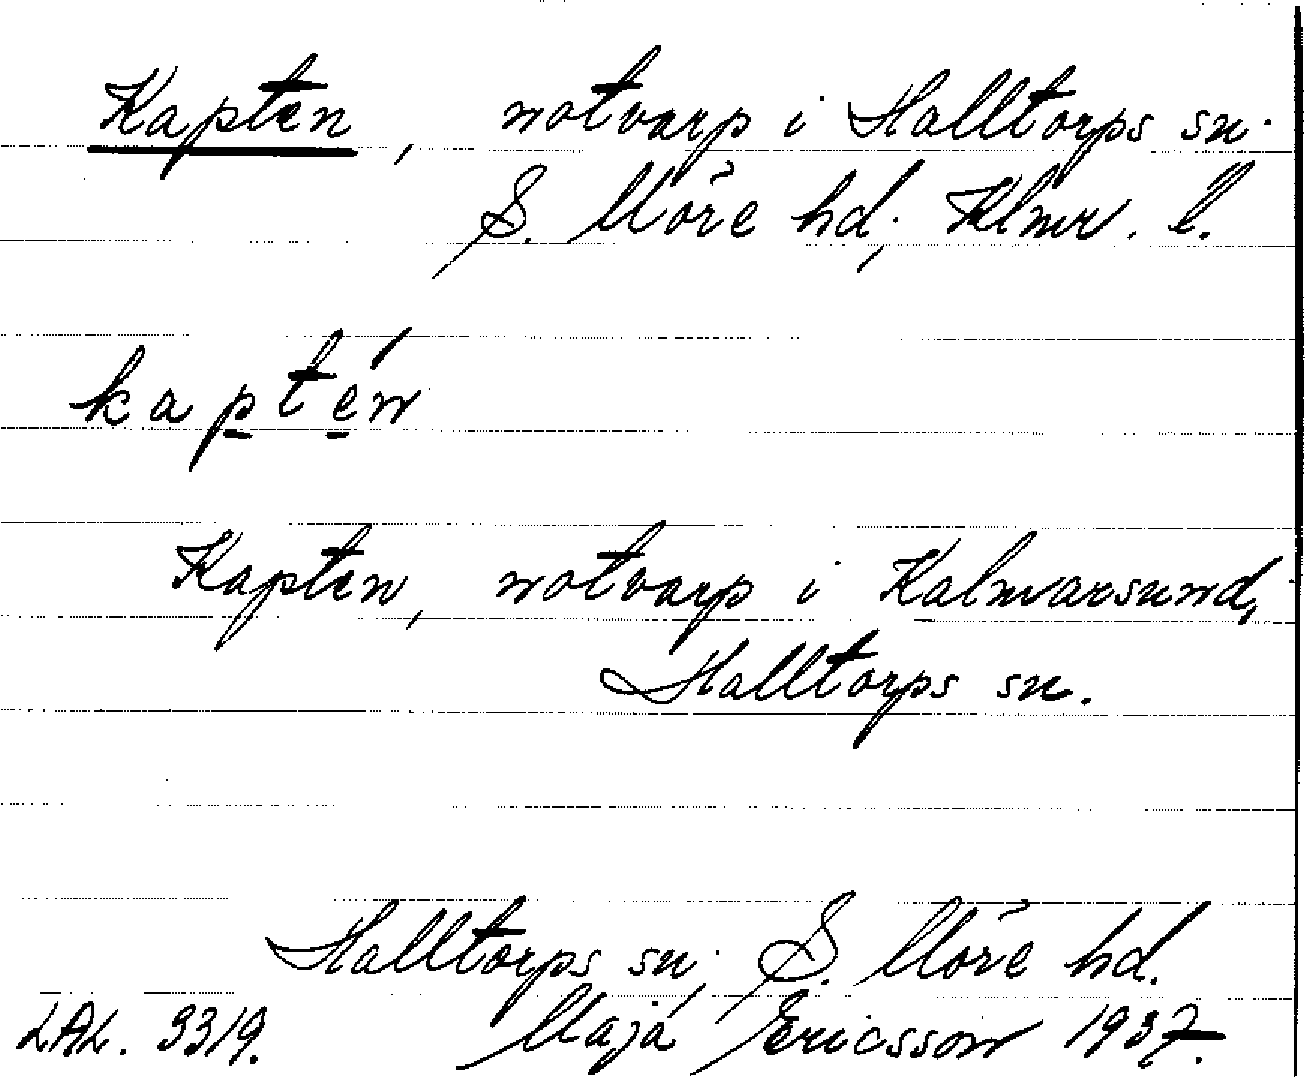 Kapten, notvarp i Halltorps sn.
S. Möre hd, Klmr. l.
kaptén
Kapten, notvarp i Kalmarsund,
Halltorps sn.
Halltorps sn, S. Möre hd.
LAL. 3319. Maja Ericsson 1937.